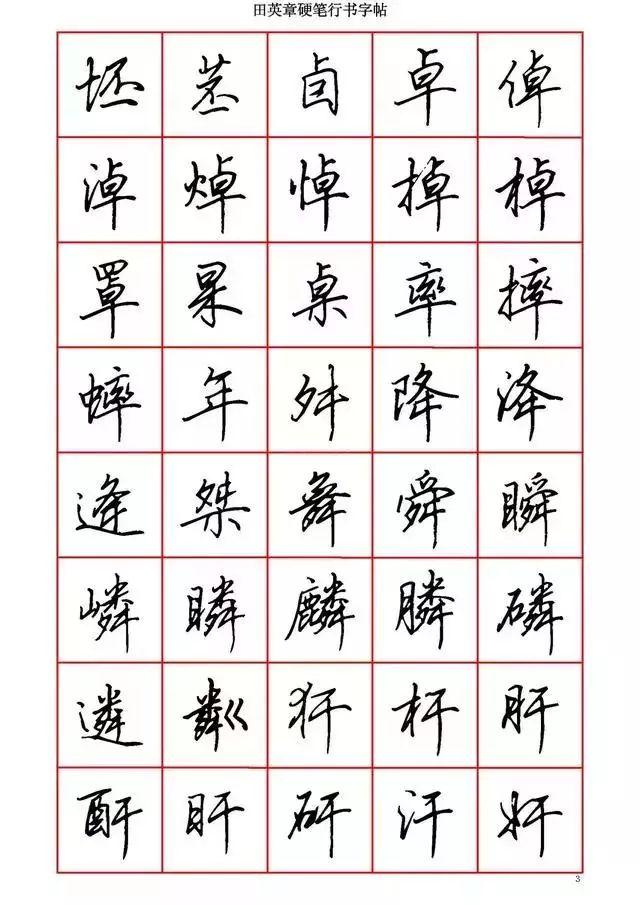 田英章硬笔行书字帖
坯 苤 卣 卓 倬
淖 焯 悼 掉 棹
罩 杲 桌 率 摔
蟀 年 舛 降 洚
逢 桀 舞 舜 瞬
嶙 瞵 麟 膦 磷
遴 粼 犴 杆 肝
酐 旰 矸 汗 奸
3